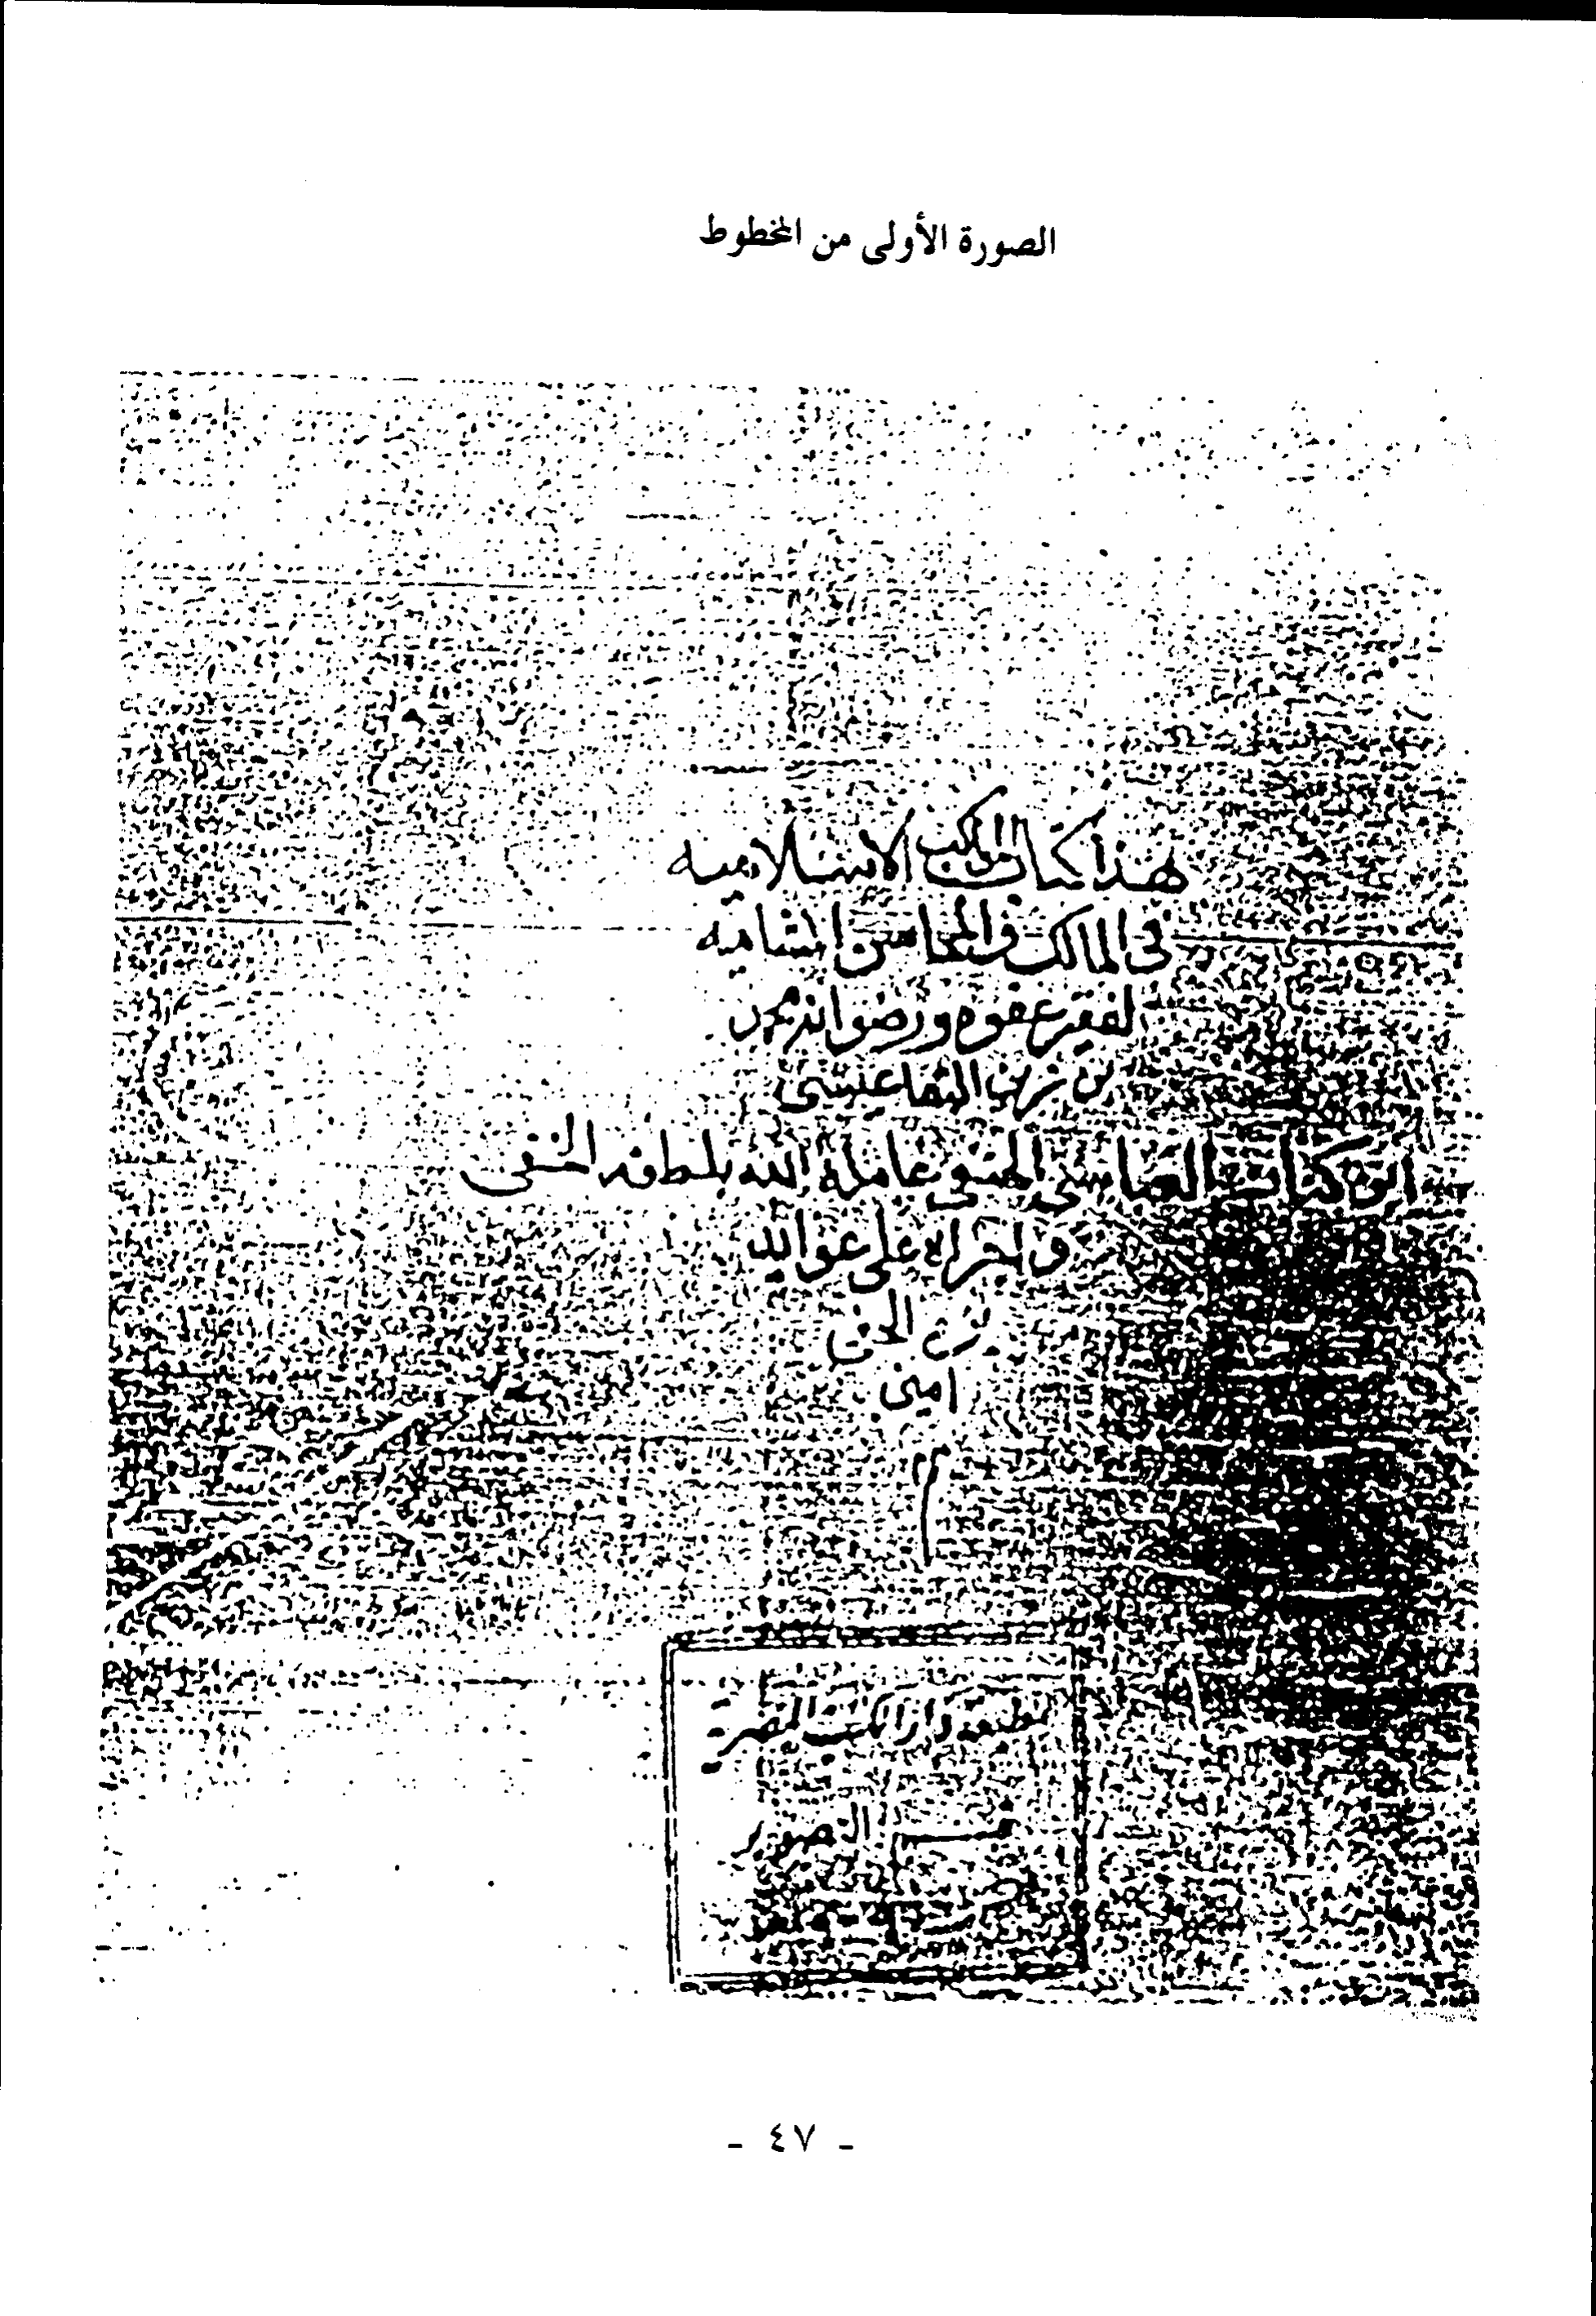 الصورة الأولى من المخطوط
هذا كتاب المواكب الاسلاميه
فى الممالك والمحاسن الشاميه
لفقير عفوه ورضوانه محمد
بن
ابن كنان العباسى الحنفى عامله الله بلطفه الخفى
واجراه على عوايد
بره الحفى
امين
م
مطبعة دار الكتب المصرية
التصوير
- ٤٧ -